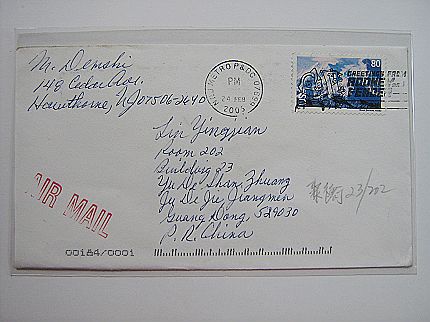 M. Demshi
148 Cedar Ave.
Hawthorne, NJ 07506-2640
PM
24 FEB
2005
80
USA
GREETINGS FROM
Lin Yingjian
Room 202
Building 23
Yu De Shan Zhuang
Ju De Jie, Jiangmen
Guang Dong, 529030
P. R. China
23/202
AIR MAIL
00184/0001